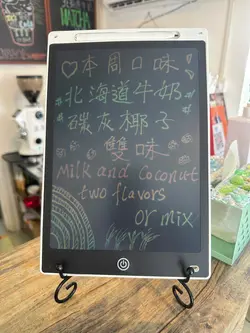 MATCHA
♡本周口味
北海道牛奶
碳灰椰子
雙味
Milk and Coconut
two flavors
or mix